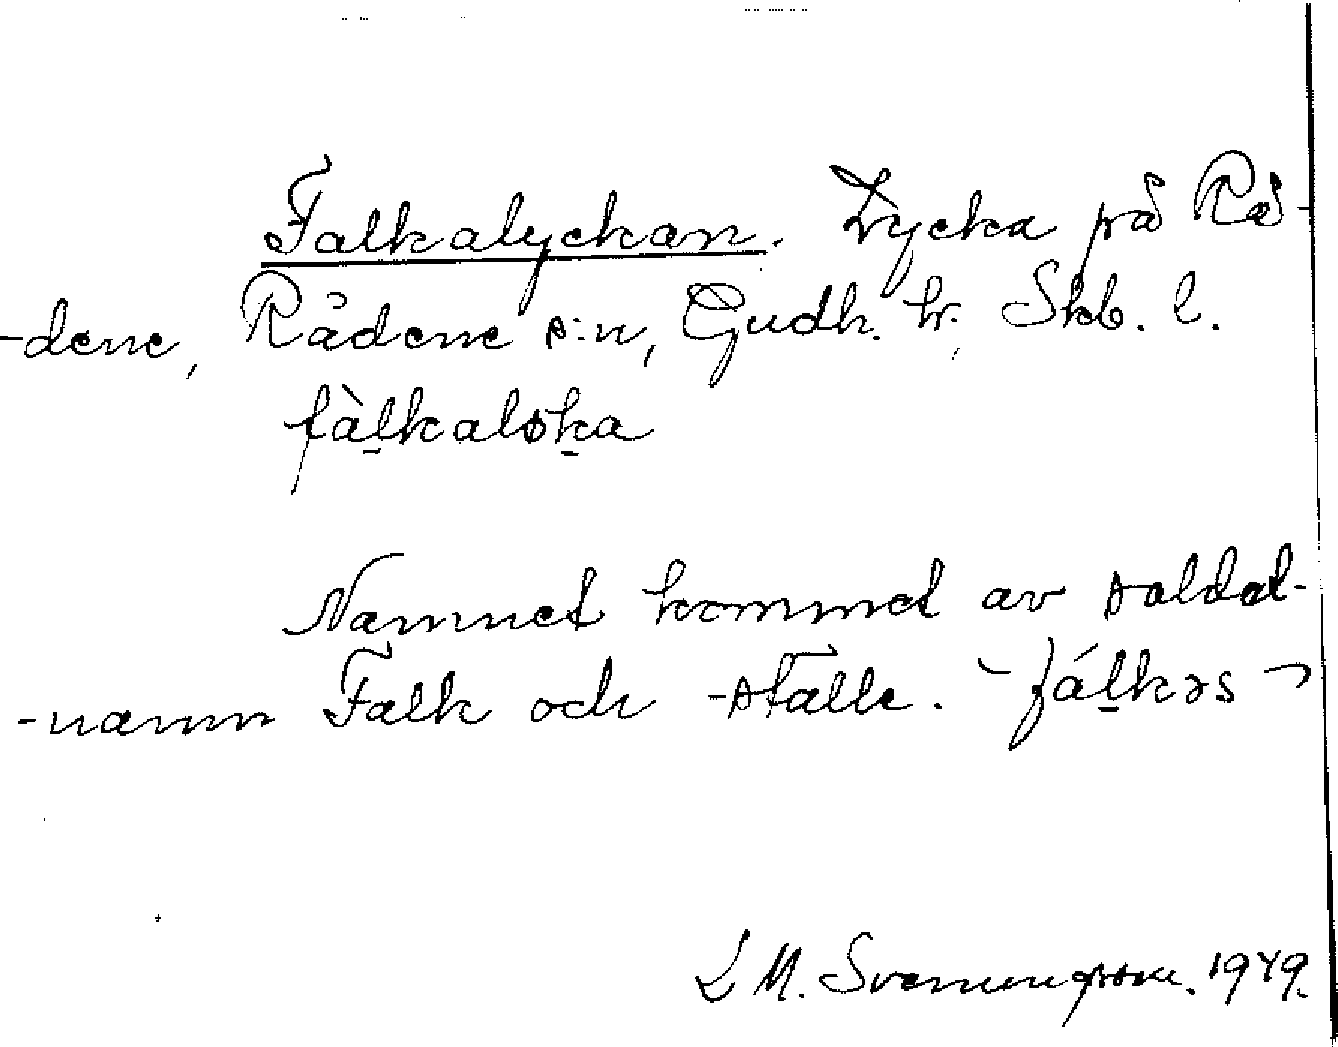 Falkalyckan. Lycka på Rå-
-dene, Rådene s:n, Gudh. hr. Skb. l.
fàl̠kaløk̠a
Namnet kommet av soldat-
-namn Falk och -ställe. fál̠kəs
L M. Svenungsson. 1949.